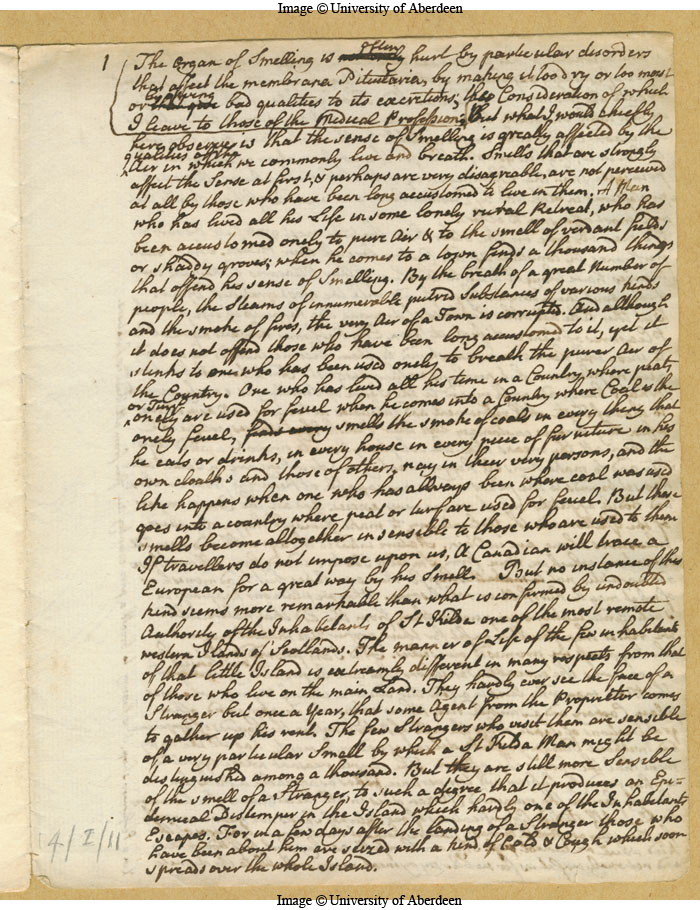 Image © University of Aberdeen
1 The Organ of Smelling is often hurt by particular disorders
that affect the membrana Pituitaria, by making it too dry or too moist
or by giving bad qualities to its excretions; the Consideration of which
I leave to those of the Medical Profession. But what I would chiefly
here observe is that the sense of Smelling is greatly affected by the
qualities of the
Air in which we commonly live and breath. Smells that are strongly
affect the Sense at first, & perhaps are very disagreable, are not perceived
at all by those who have been long accustomed to live in them. A Man
who has lived all his Life in some lonely rural Retreat, who has
been accustomed onely to pure Air & to the smell of verdant fields
or shaddy groves; when he comes to a town finds a thousand things
that offend his sense of Smelling. By the breath of a great Number of
people, the Steams of innumerable putrid Substances of various kinds
and the smoke of fires, the very Air of a Town is corrupted. And although
it does not offend those who have been long accustomed to it, yet it
stinks to one who has been used onely to breath the purer Air of
the Country. One who has lived all his time in a Country where peats
or Turf
onely are used for fewel when he comes into a Country where Coal is the
onely fewel, finds every smells the smoke of coals in every thing that
he eats or drinks, in every house in every piece of furniture in his
own cloaths and those of others, nay in their very persons, and the
like happens when one who has allways been where coal was used
goes into a country where peat or turf are used for fewel. But these
smells become altogether insensible to those who are used to them
If travellers do not impose upon us, A Canadian will trace a
European for a great way by his Smell. But no instance of this
kind seems more remarkable than what is confirmed by undoubted
Authority of the Inhabitants of St Kilda one of the most remote
western Islands of Scotland. The manner of Life of the few inhabitants
of that little Island is extreamly different in many respects from that
of those who live on the main Land. They hardly ever see the face of a
Stranger but once a Year, that some Agent from the Proprietor comes
to gather up his rent. The few Strangers who visit them are sensible
of a very particular Smell by which a St Kilda Man might be
distinguished among a thousand. But they are still more Sensible
of the smell of a Stranger, to such a degree that it produces an Epi-
demical Distemper in the Island which hardly one of the Inhabitants
Escapes. For in a few days after the landing of a Stranger those who
have been about him are seized with a kind of Cold & Cough which soon
spreads over the whole Island.
4/I/11
Image © University of Aberdeen